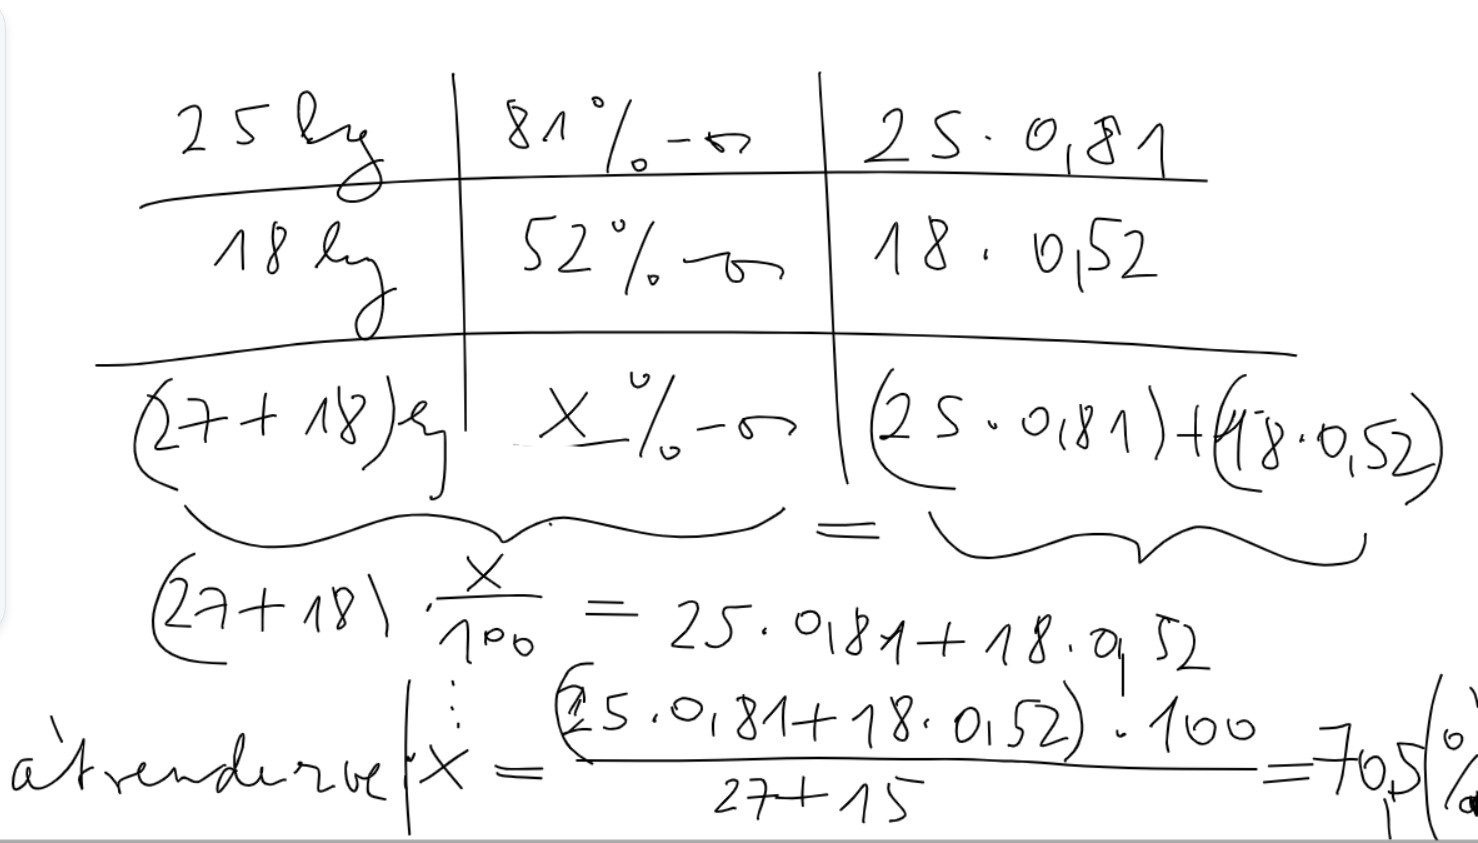 25 kg 81%-os 25 · 0,81
18 kg 52%-os 18 · 0,52
(27 + 18) kg X %-os (25 · 0,81) + (18 · 0,52)
=
(27 + 18) · X/100 = 25 · 0,81 + 18 · 0,52
átrendezve X = (25 · 0,81 + 18 · 0,52) · 100 / 27 + 15 = 70,5 (%